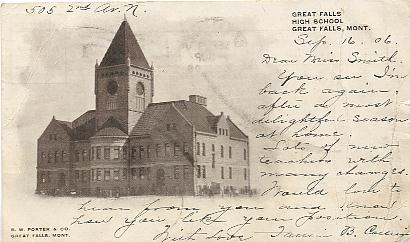 505 2nd Av. N.
GREAT FALLS
HIGH SCHOOL
GREAT FALLS, MONT.
Sep. 16. 06.
Dear Miss Smith.
You see I'm
back again,
after a most
delightful season
at home.
Lots of new
teachers with
many changes.
Would like to
hear from you and know
how you like your position.
With love B.
B. W. PORTER & CO.
GREAT FALLS, MONT.